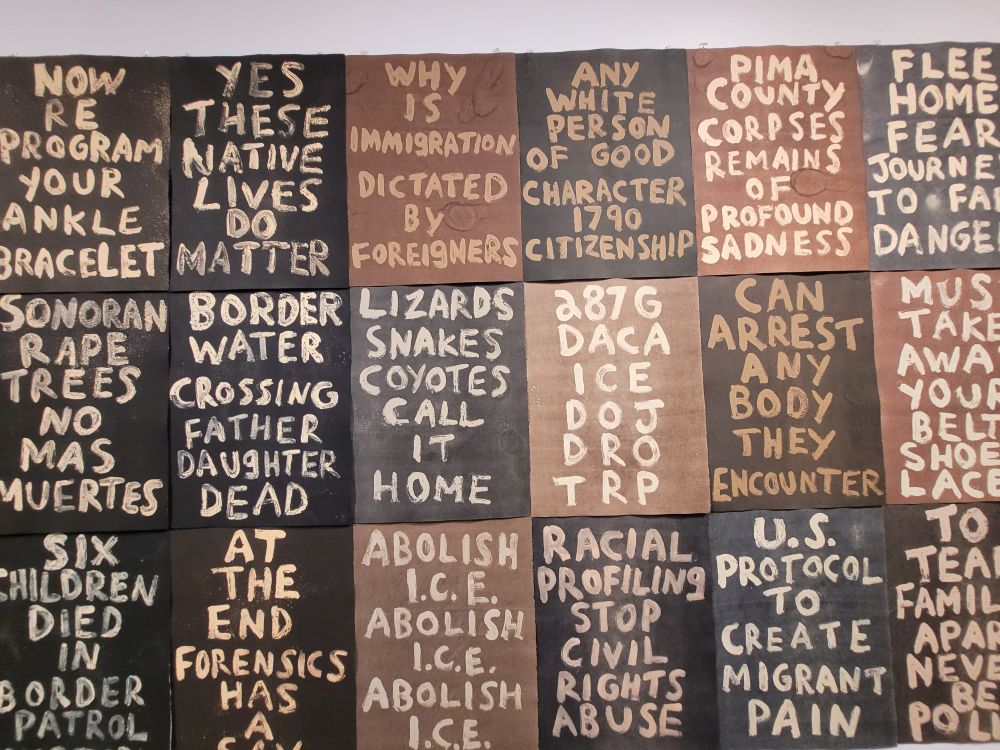 NOW
RE
PROGRAM
YOUR
ANKLE
BRACELET
YES
THESE
NATIVE
LIVES
DO
MATTER
WHY
IS
IMMIGRATION
DICTATED
BY
FOREIGNERS
ANY
WHITE
PERSON
OF GOOD
CHARACTER
1790
CITIZENSHIP
PIMA
COUNTY
CORPSES
REMAINS
OF
PROFOUND
SADNESS
FLEE
HOME
FEAR
JOURNE
TO FA
DANGE
SONORAN
RAPE
TREES
NO
MAS
MUERTES
BORDER
WATER
CROSSING
FATHER
DAUGHTER
DEAD
LIZARDS
SNAKES
COYOTES
CALL
IT
HOME
287G
DACA
ICE
DOJ
DRO
TRP
CAN
ARREST
ANY
BODY
THEY
ENCOUNTER
MUS
TAKE
AWA
YOUR
BELT
SHOE
LACE
SIX
CHILDREN
DIED
IN
BORDER
PATROL
AT
THE
END
FORENSICS
HAS
A
SAY
ABOLISH
I.C.E.
ABOLISH
I.C.E.
ABOLISH
I.C.E.
RACIAL
PROFILING
STOP
CIVIL
RIGHTS
ABUSE
U.S.
PROTOCOL
TO
CREATE
MIGRANT
PAIN
TO
TEA
FAMIL
APAR
NEVE
BE
POLI